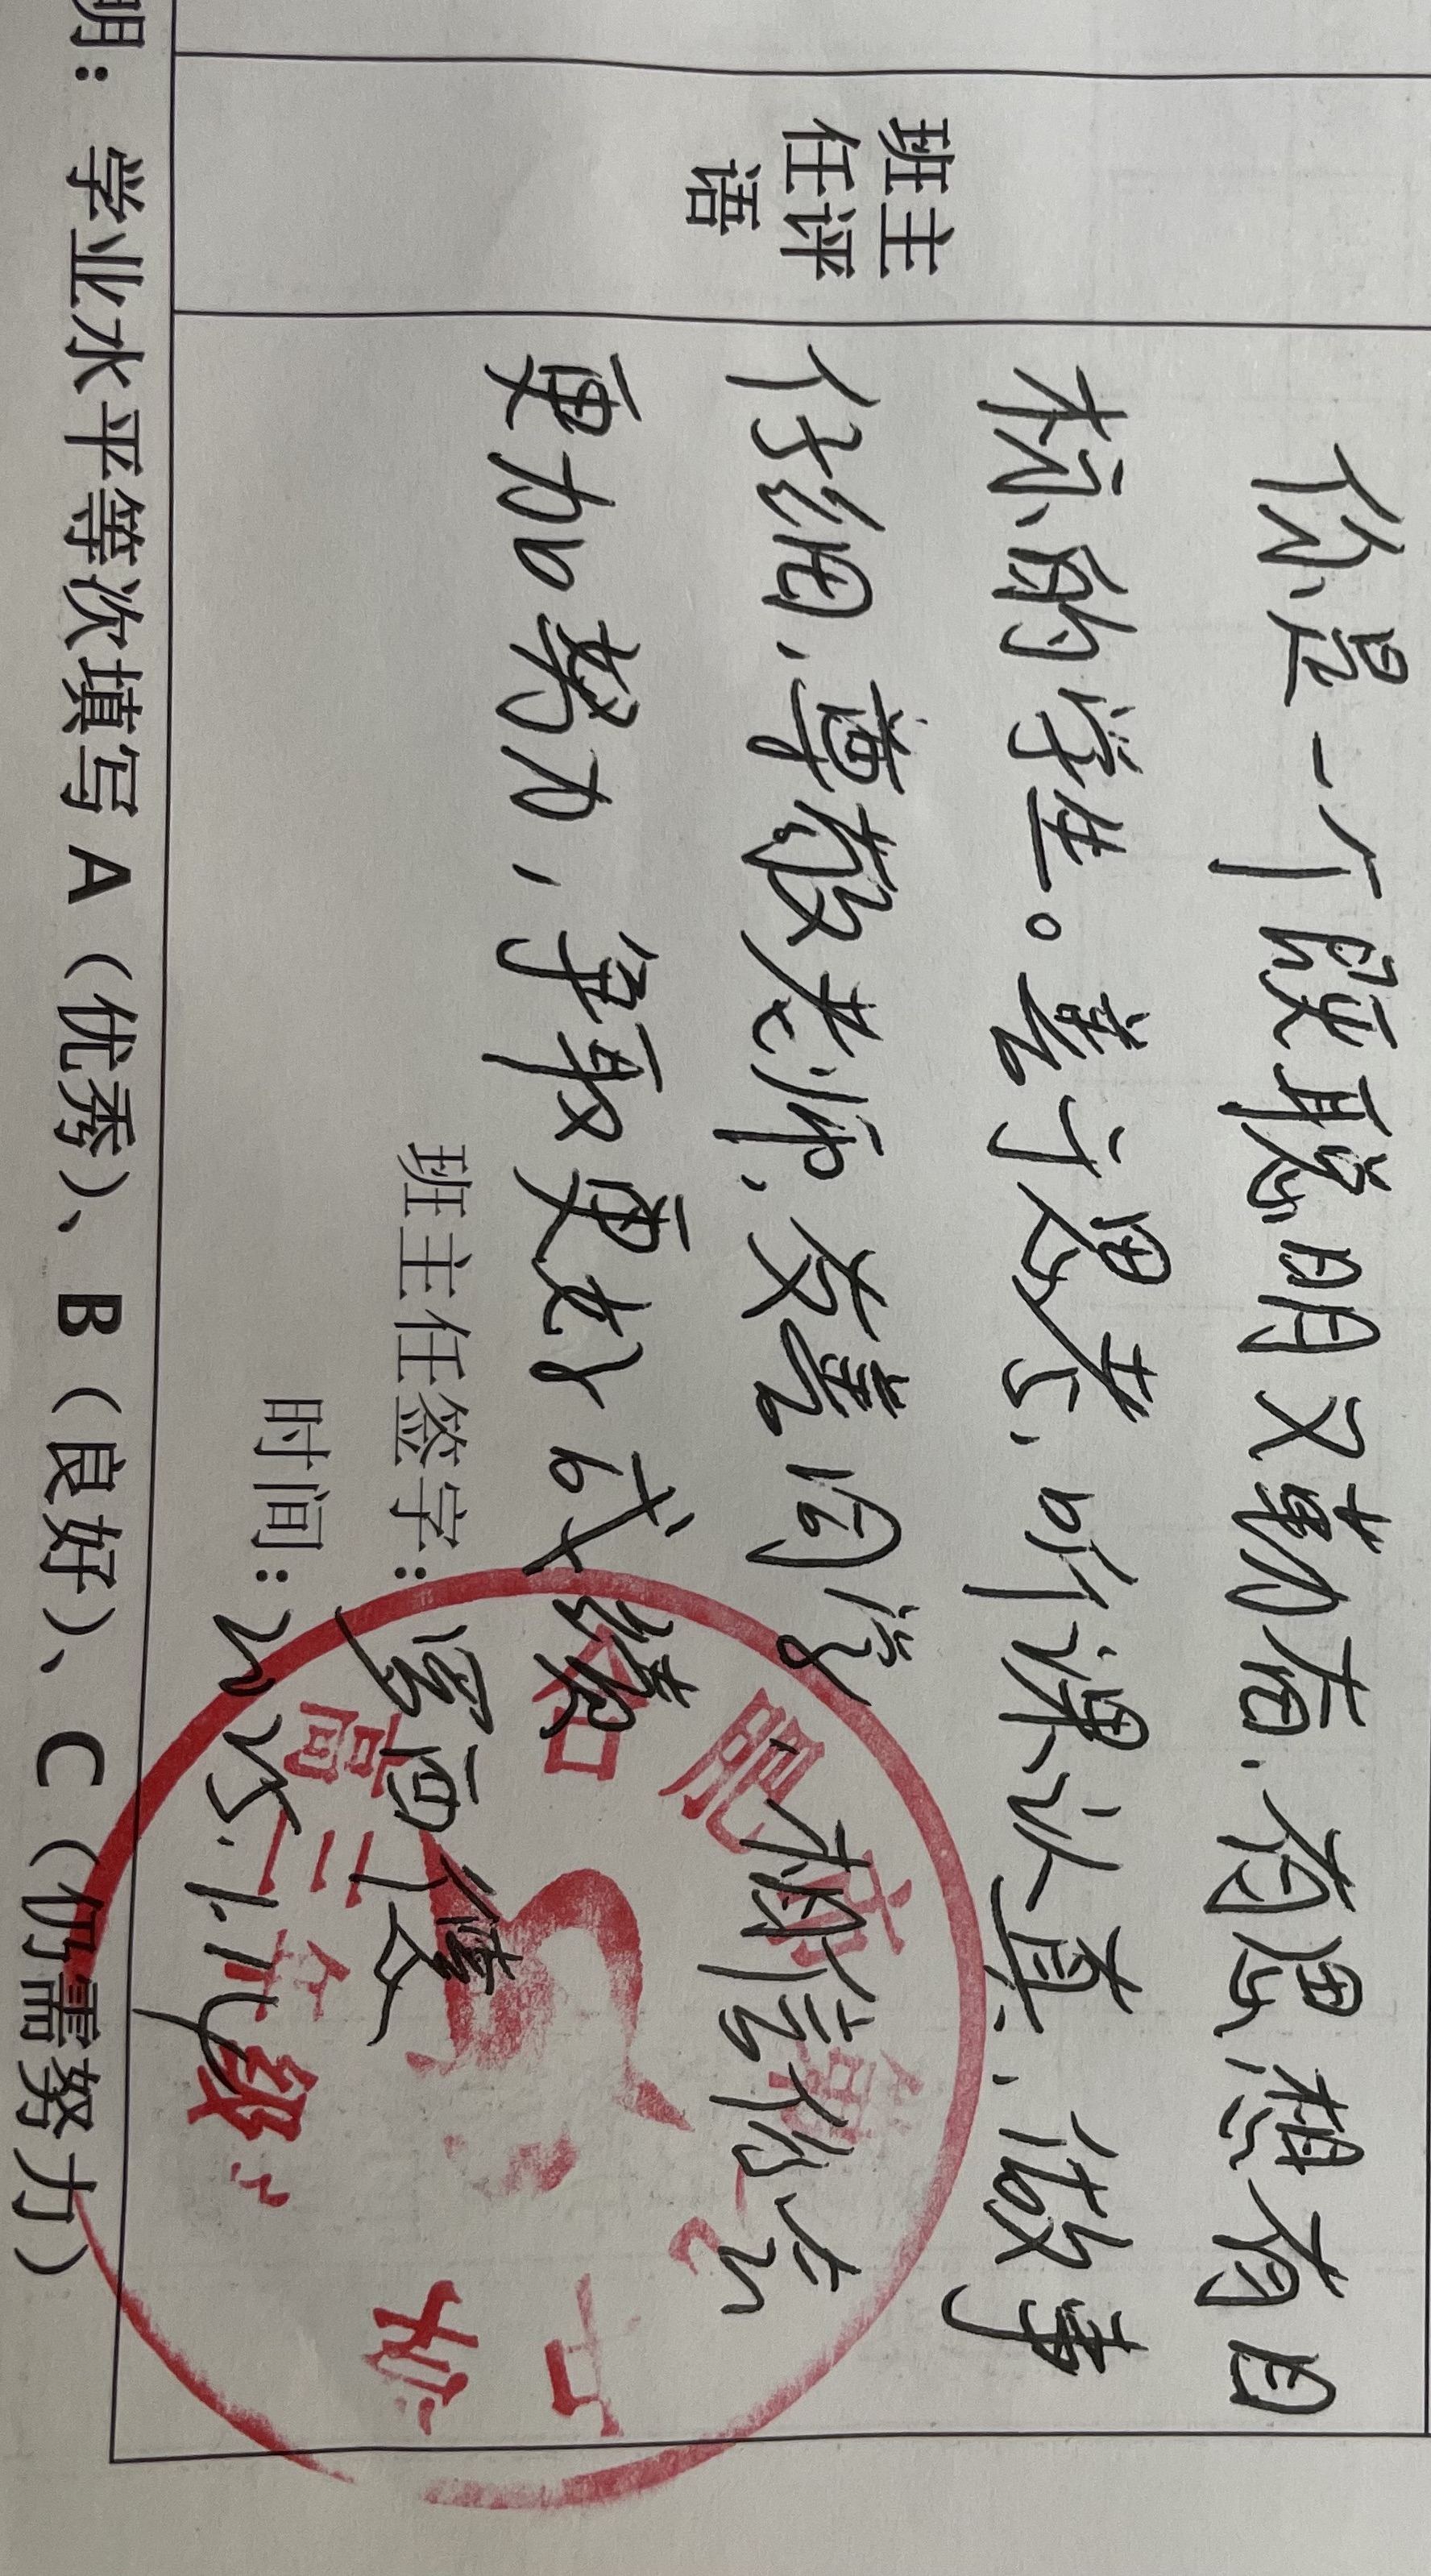 班主
任评
语
你是一个既聪明又勤奋、有思想有目
标的学生。善于思考、听课认真、做事
仔细、尊敬老师、友善同学、相信你会
更加努力，争取更好成绩
班主任签字：
时间：
合肥
高三年级
明：学业水平等次填写 A（优秀）、B（良好）、C（仍需努力）